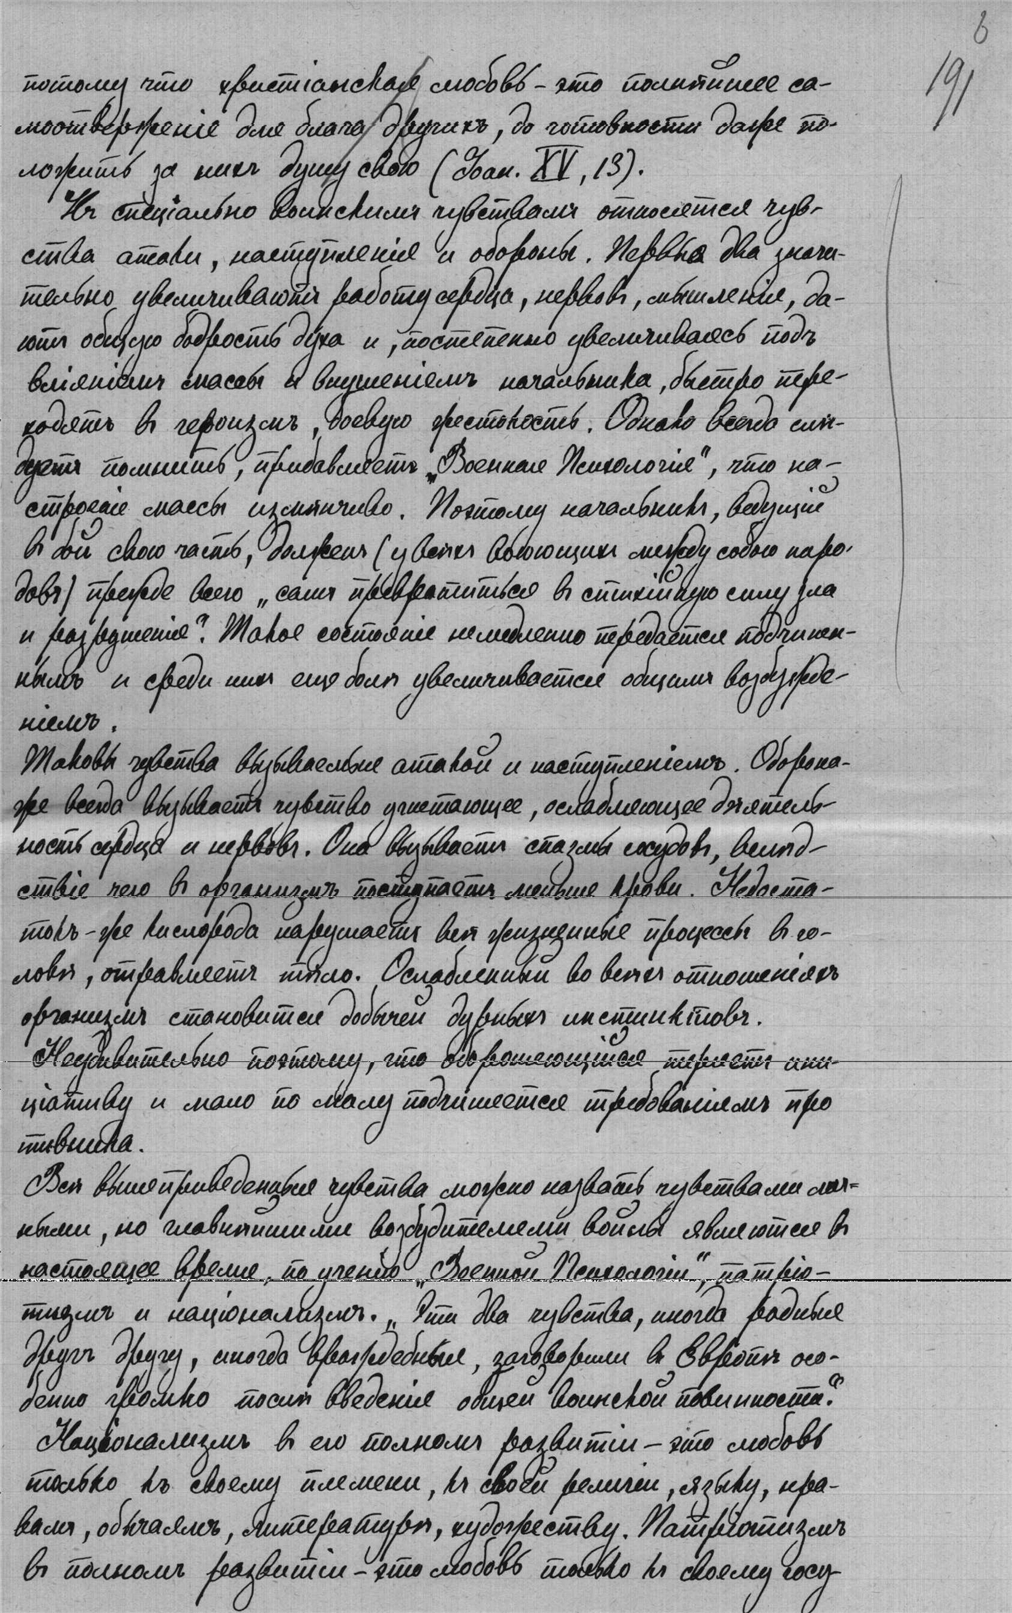 6
191
потому что христіанская любовь – это полнѣйшее са-
моотверженіе для блага другихъ, до готовности даже по-
ложить за нихъ душу свою (Іоан. XV, 13).
Къ спеціально воинскимъ чувствамъ относятся чув-
ства атаки, наступленія и обороны. Первыя два значи-
тельно увеличиваютъ работу сердца, нервовъ, мышленія, да-
ютъ общую бодрость духа и, постепенно увеличиваясь подъ
вліяніемъ массы и внушеніемъ начальника, быстро пере-
ходятъ въ героизмъ, боевую жестокость. Однако всегда слѣ-
дуетъ помнить, прибавляетъ „Военная Психологія", что на-
строеніе массы измѣнчиво. Поэтому начальникъ, ведущій
въ бой свою часть, долженъ (у всѣхъ воюющихъ между собою наро-
довъ) прежде всего „самъ превратиться въ стихійную силу зла
и разрушенія". Такое состояніе немедленно передается подчинен-
нымъ и среди нихъ еще болѣе увеличивается общимъ возбужде-
ніемъ.
Таковы чувства вызываемыя атакой и наступленіемъ. Оборона-
же всегда вызываетъ чувство угнетающее, ослабляющее дѣятель-
ность сердца и нервовъ. Она вызываетъ спазмы сосудовъ, вслѣд-
ствіе чего въ организмъ поступаетъ меньше крови. Недоста-
токъ-же кислорода нарушаетъ всѣ жизненные процессы въ го-
ловѣ, отравляетъ тѣло. Ослабленный во всѣхъ отношеніяхъ
организмъ становится добычей дурныхъ инстинктовъ.
Неудивительно поэтому, что обороняющійся теряетъ ини-
ціативу и мало по малу подчиняется требованіямъ про
тивника.
Всѣ вышеприведенныя чувства можно назвать чувствами лич=
ными, но главнѣйшими возбудителями войны являются въ
настоящее время, по ученію „Военной Психологіи", патріо-
тизмъ и націонализмъ. „Эти два чувства, иногда родныя
другъ другу, иногда враждебныя, заговорили въ Европѣ осо-
бенно громко послѣ введенія общей воинской повинности".
Націонализмъ въ его полномъ развитіи – это любовь
только къ своему племени, къ своей религіи, языку, нра-
вамъ, обычаямъ, литературѣ, художеству. Патріотизмъ
въ полномъ развитіи – это любовь только къ своему госу-